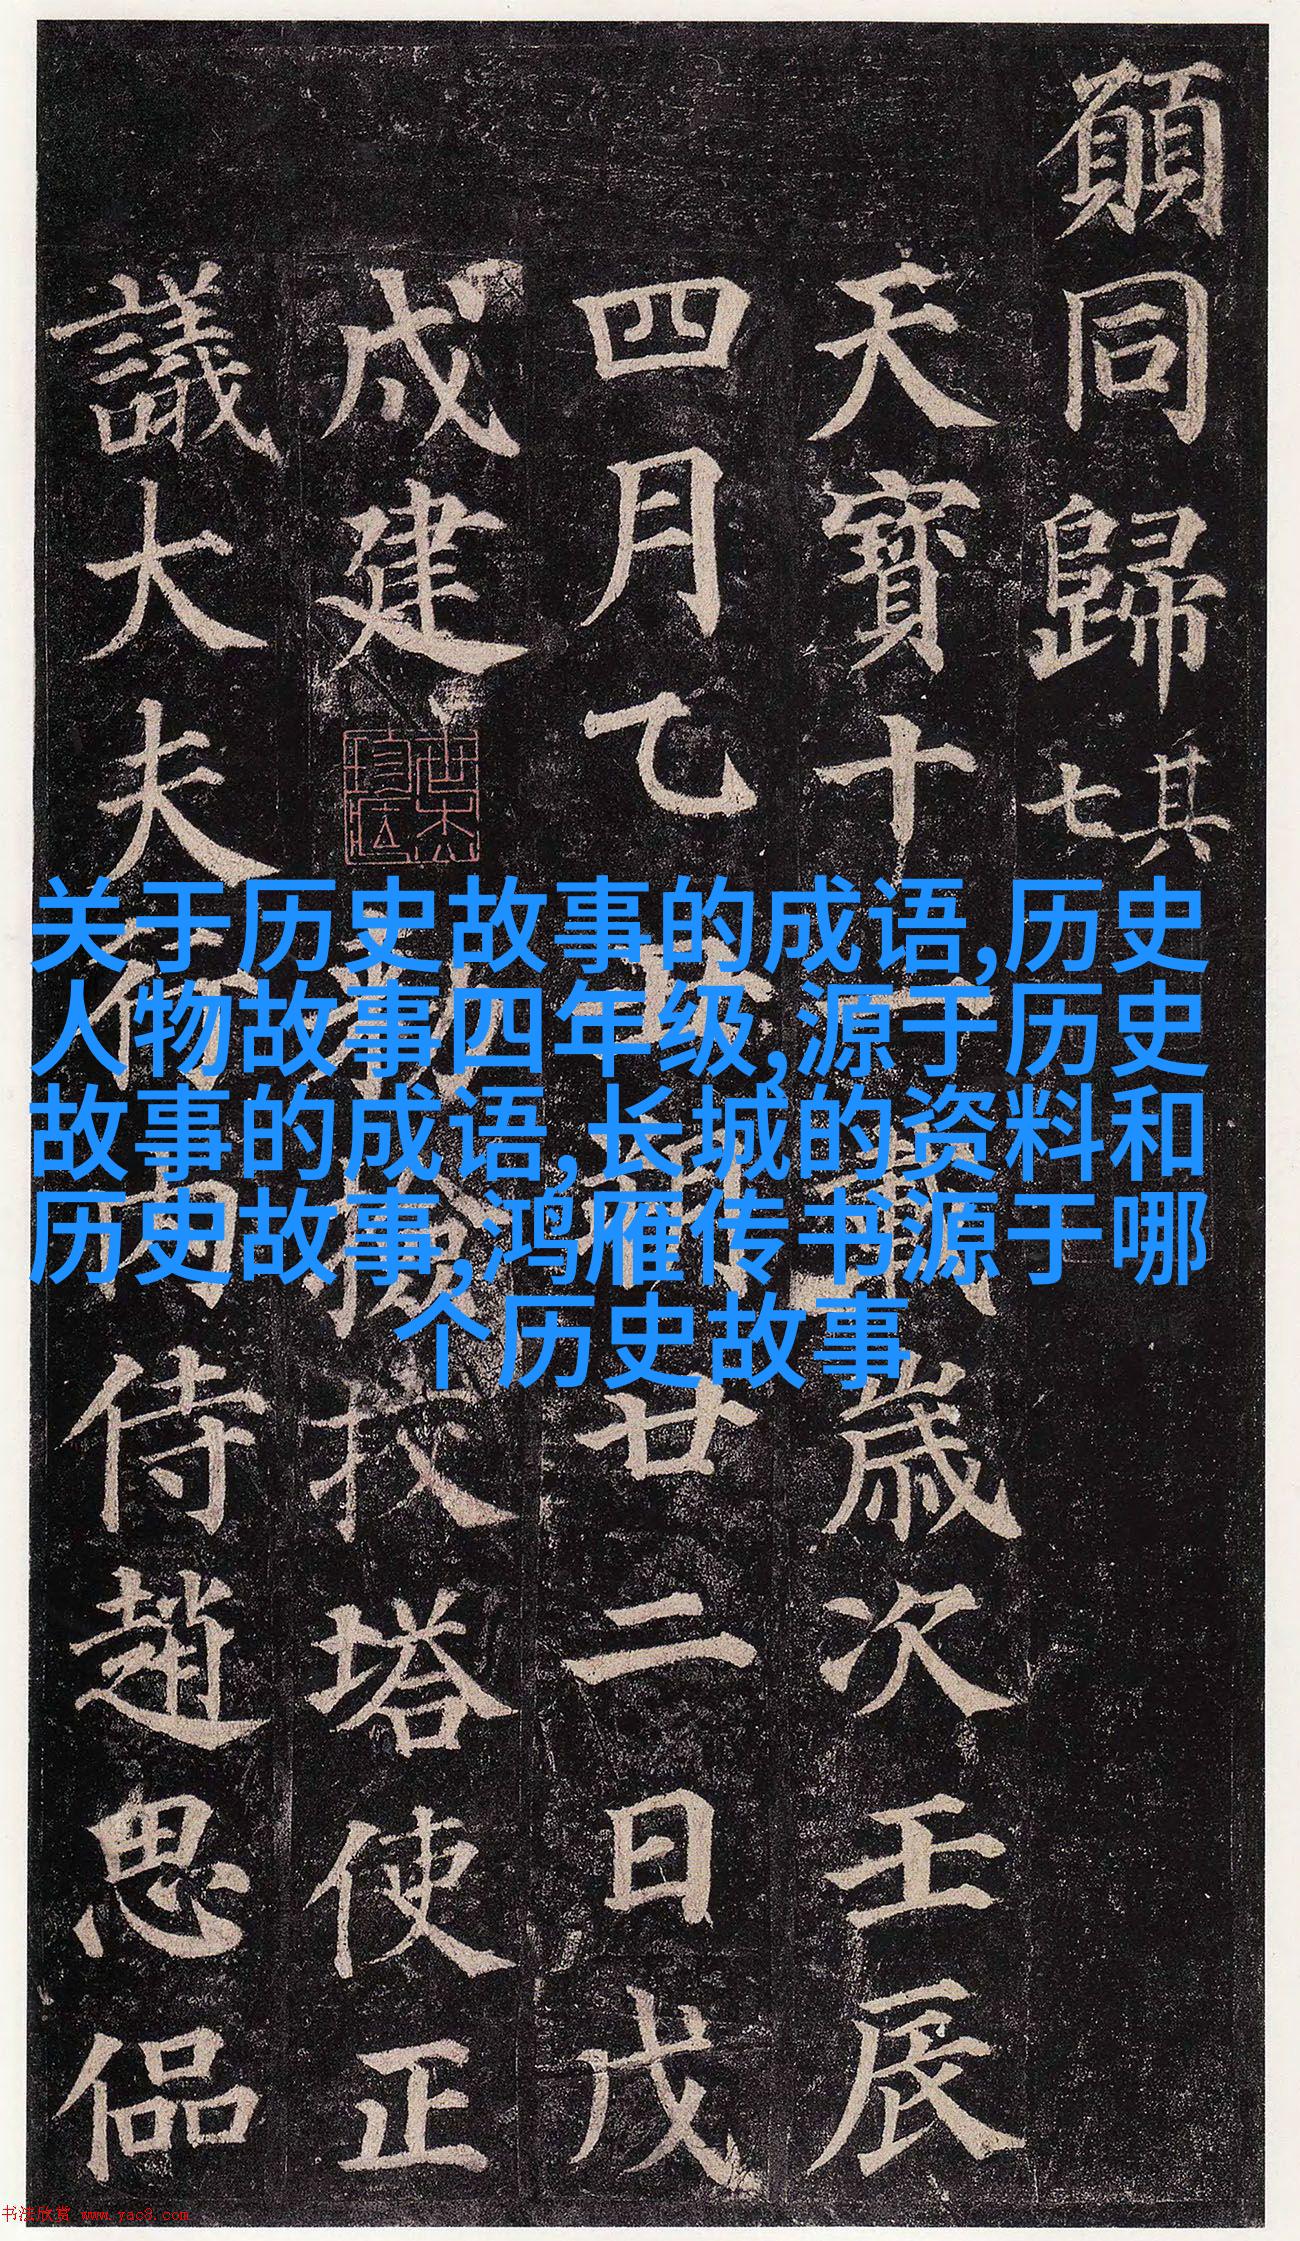 願同歸其七
天寶十一載歲次壬辰
四月乙丑朔廿二日戊
戌建勑撿挍塔使正
議大夫行內侍趙思偘
关于历史故事的成语,历史
人物故事四年级,源于历史
故事的成语,长城的资料和
历史故事,鸿雁传书源于哪
个历史故事
书法欣赏 www.yac8.com